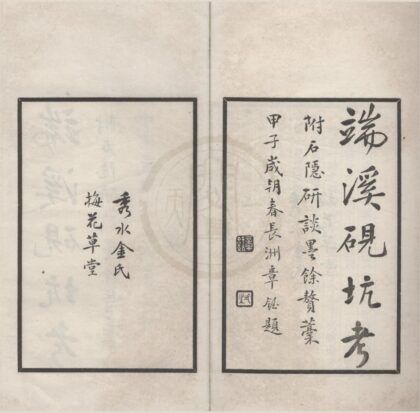 端溪硯坑考
附石隱研談墨餘贅稾
甲子歲朝春長洲章鈺題
秀水金氏
梅花草堂